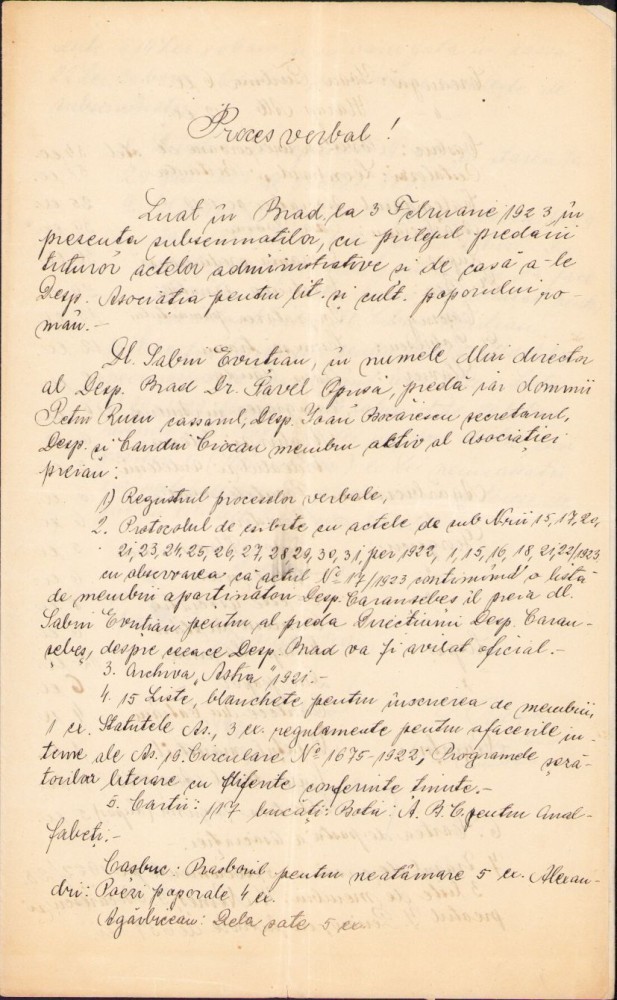 Proces verbal!
Luat în Brad, la 3 Februarie 1923, în
presența subsemnaților, cu prilejul predării
tuturor actelor administrative și de casă a-le
Desp. Asociatia pentru lit. și cult. poporului ro-
mân.-
Dl. Sabin Evuțian, în numele dlui director
al Desp. Brad Dr. Pavel Oprișa, predă iar domnii
Petru Rusu cassarul, Desp. Ioan Bocăiescu secretarul,
Desp. și Candin Ciocan membru activ al Asociației
preiau:
1) Registrul proceselor verbale,
2. Protocolul de esibite cu actele de sub Nrii 15, 17, 20,
21, 23, 24, 25, 26, 27, 28, 29, 30, 31, per 1922, 1, 15, 16, 18, 21, 22/1923
cu observarea că actul No 17/1923 conținând o listă
de membrii aparținători Desp. Caransebeș îl preia dl.
Sabin Evuțian pentru al preda Direcțiunii Desp. Caran-
șebeș, despre ceeace Desp. Brad va fi avizat oficial.-
3. Archiva „Astra" 1921.-
4. 15 Liste, blanchete pentru înscrierea de membrii,
1 ex. Statutele As., 3 ex. regulamente pentru afacerile in-
terne ale As. 19 Circulare No 1675-1922; Programele șeză-
torilor literare cu diferite conferințe ținute.-
5. Cartii: 117 bucăți: Bota: A. B. C. pentru Anal-
fabeți.-
Coșbuc: Rasboiul pentru neatârnare 5 ex. Alexan-
dri: Poezi poporale 4 ex.
Agârbiceanu: Dela sate 5 ex.